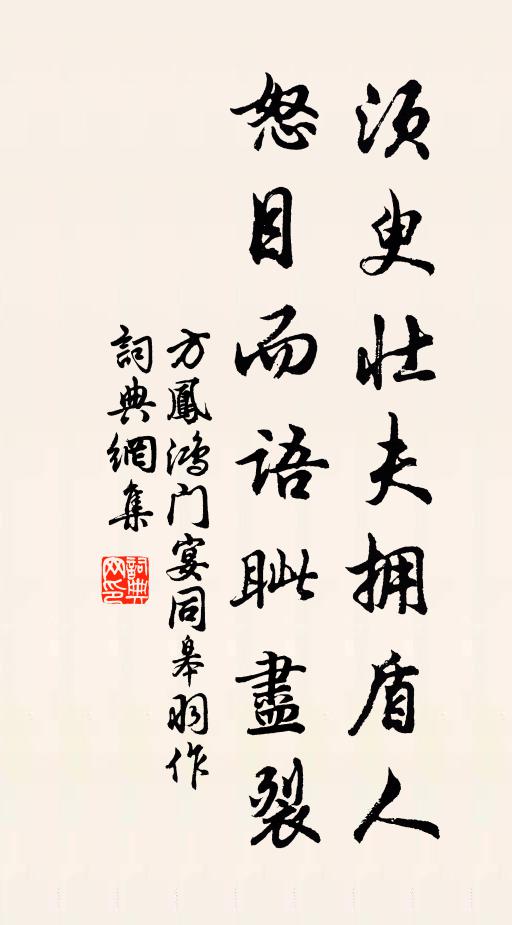 须叟壮夫拥盾人
怒目而語眦盡裂
方鳳鴻门宴同皋羽作
詞典網集
詞典网印